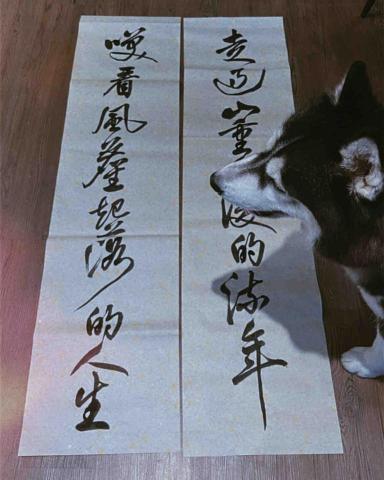 走過山重的流年
咲看風塵起落的人生